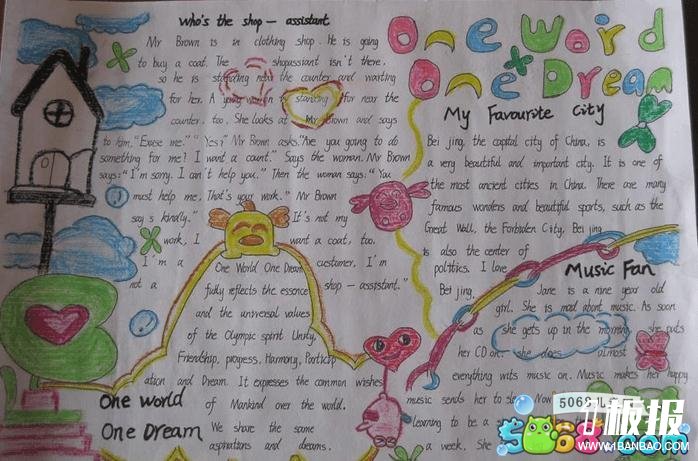 Who's the shop - assistant
Mr Brown is in clothing shop. He is going
to buy a coat. The shopassiant isn't there,
so he is standing near the counter and waiting
for her. A young woman is standing for near the
counter, too. She looks at Mr Brown and says
to him, "Excse me." "Yes?" Mr Brown asks. "Are you going to do
something for me? I want a count." Says the woman. Mr Brown
says: "I'm sorry. I can't help you." Then the woman says: "You
must help me. That's your work." Mr Brown
says kindly." It's not my
work, I want a coat, too.
I'm a customer, I'm
not a shop - assistant."
One World One Dream
fully reflects the essence
and the universal values
of the Olympic spirit Unity,
Friendship, progess, Harmony, Particip
ation and Dream. It expresses the common wishes
of Mankind over the world.
We share the same
aspirations and dreams.
One world
One Dream
One Word
One Dream
My Favourite City
Bei jing, the capital city of China, is
a very beautiful and important city. It is one of
the most ancient cities in China. There are many
famous wonders and beautiful sports, such as the
Great Wall, the Forbiden City, Bei jing
is also the center of
politics. I love
Bei jing.
Music Fan
Jane is a nine year old
girl. She is mad about music. As soon
as she gets up in the morning, she puts
her CD on. she does almost
everything wits music on. Music makes her happy
music sends her to Now
learning to be a
a week. She
5068儿
板报
5068.com
www.1BANBAO.com